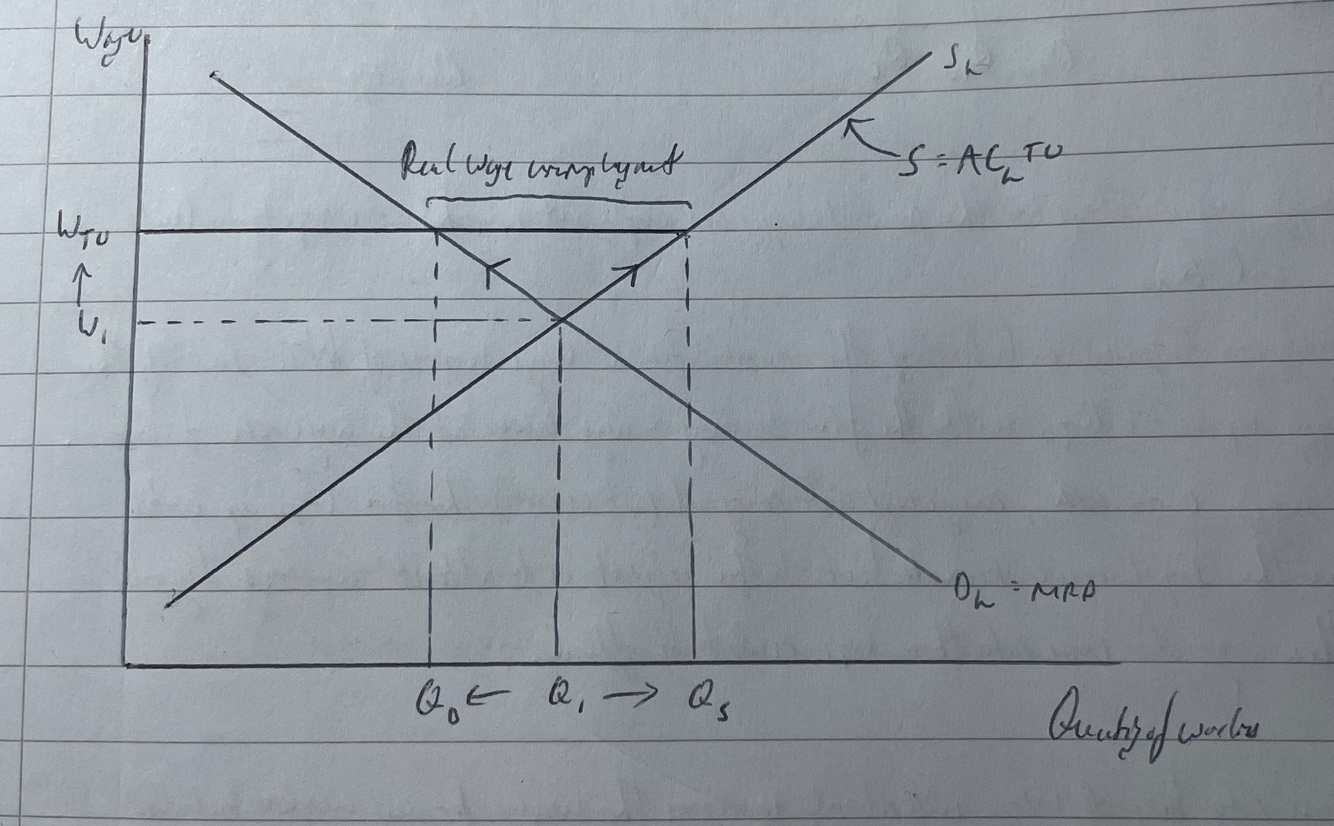 Wage
S_L
Real wage unemployment
S = AC_L^TU
W_TU
↑
W_1
D_L = MRP
Q_D ← Q_1 → Q_S
Quantity of workers